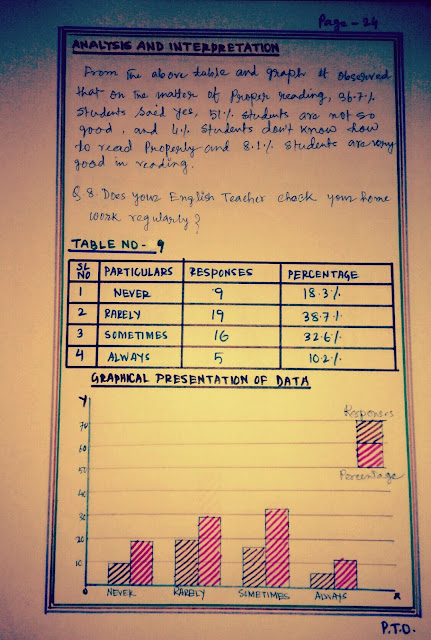 Page - 24
ANALYSIS AND INTERPRETATION
From the above table and graph it observed
that on the matter of Proper reading, 36.7%
students said yes, 51% students are not so
good, and 4% students don't know how
to read Properly and 8.1% students are very
good in reading.
Q 8. Does your English Teacher check your home
work regularly?
TABLE NO - 9
SL NO PARTICULARS RESPONSES PERCENTAGE
1 NEVER 9 18.3%
2 RARELY 19 38.7%
3 SOMETIMES 16 32.6%
4 ALWAYS 5 10.2%
GRAPHICAL PRESENTATION OF DATA
Y
Responses
70
60
50
Percentage
40
30
20
10
0
NEVER RARELY SOMETIMES ALWAYS X
P.T.O.